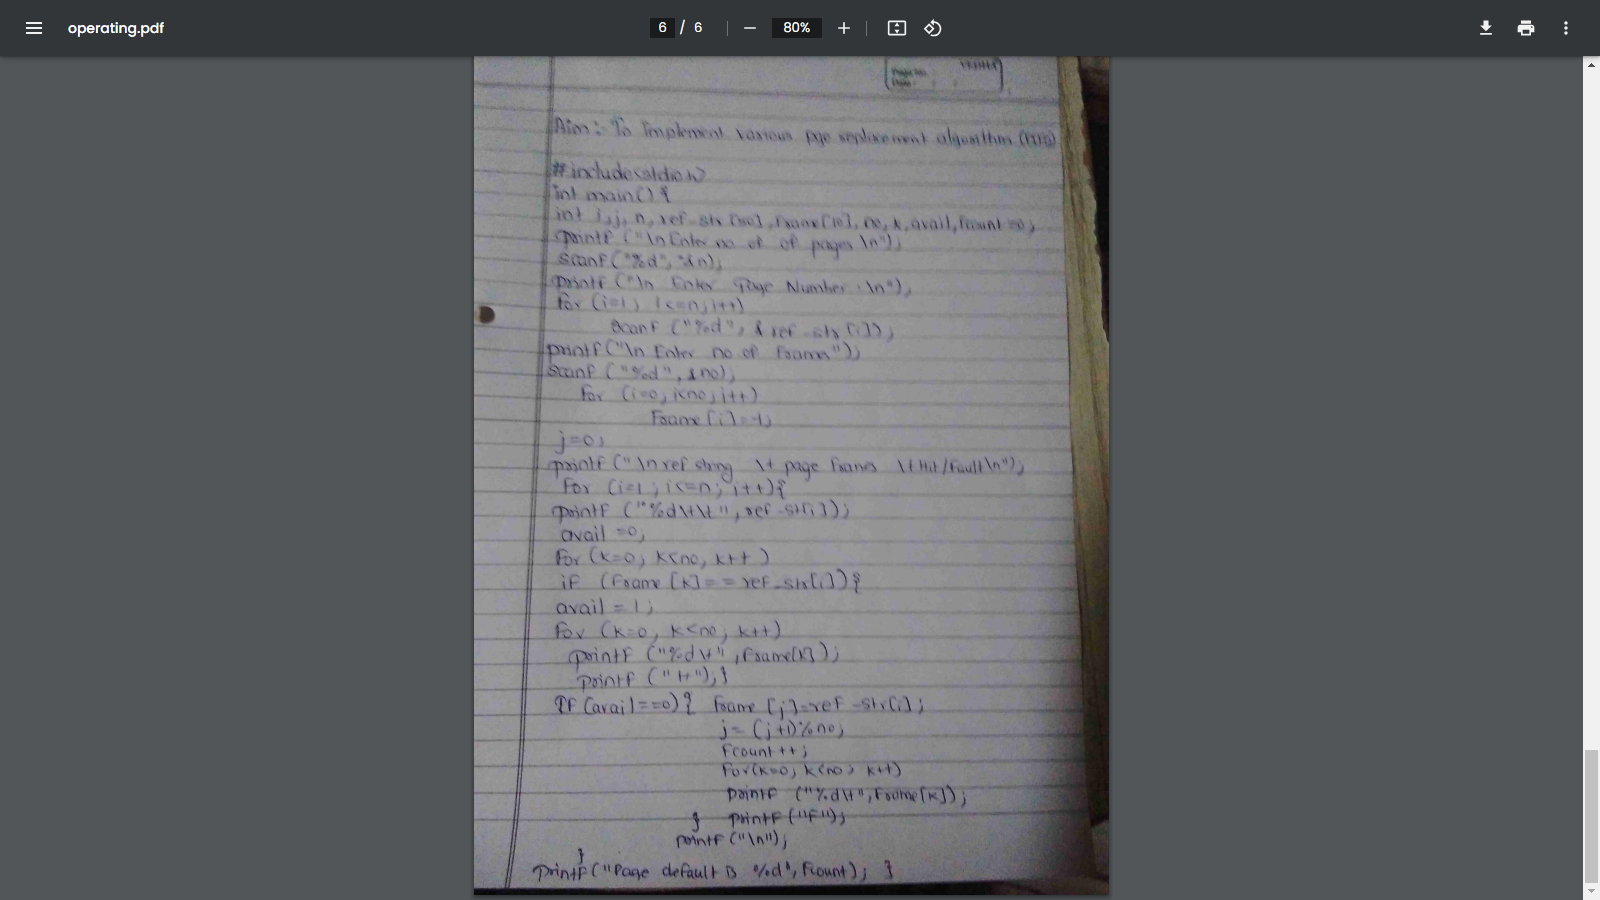 operating.pdf
6 / 6
80%
Page No.
Date:
Aim :- To Implement various page replacement algorithm (FIFO)
#include<stdio.h>
int main() {
int i,j, n, ref_str [50], frame[10], no, k, avail, fcount =0;
printf ("\n Enter no of of pages \n");
scanf ("%d", &n);
printf ("\n Enter Page Number : \n");
for (i=1 ; i<=n; i++)
scanf ("%d", & ref_str [i]);
printf("\n Enter no of frames");
scanf ("%d", &no);
for (i=0; i<no; i++)
Frame [i]=-1;
j=0;
printf ("\n ref string \t page frames \t Hit/Fault\n");
for (i=1 ; i<=n; i++){
printf ("%d\t\t", ref_str[i]);
avail =0;
for (k=0; k<no; k++ )
if (Frame [k]== ref_str[i]){
avail = 1;
for (k=0; k<no; k++)
printf ("%d\t", frame[k]);
printf ("H"); }
If (avail==0){ frame [j]=ref_str[i];
j= (j+1)%no;
Fcount ++;
for(k=0; k<no; k++)
printf ("%d\t", frame[k]);
} printf ("F");
printf ("\n");
}
printf ("Page default is %d", fcount); }